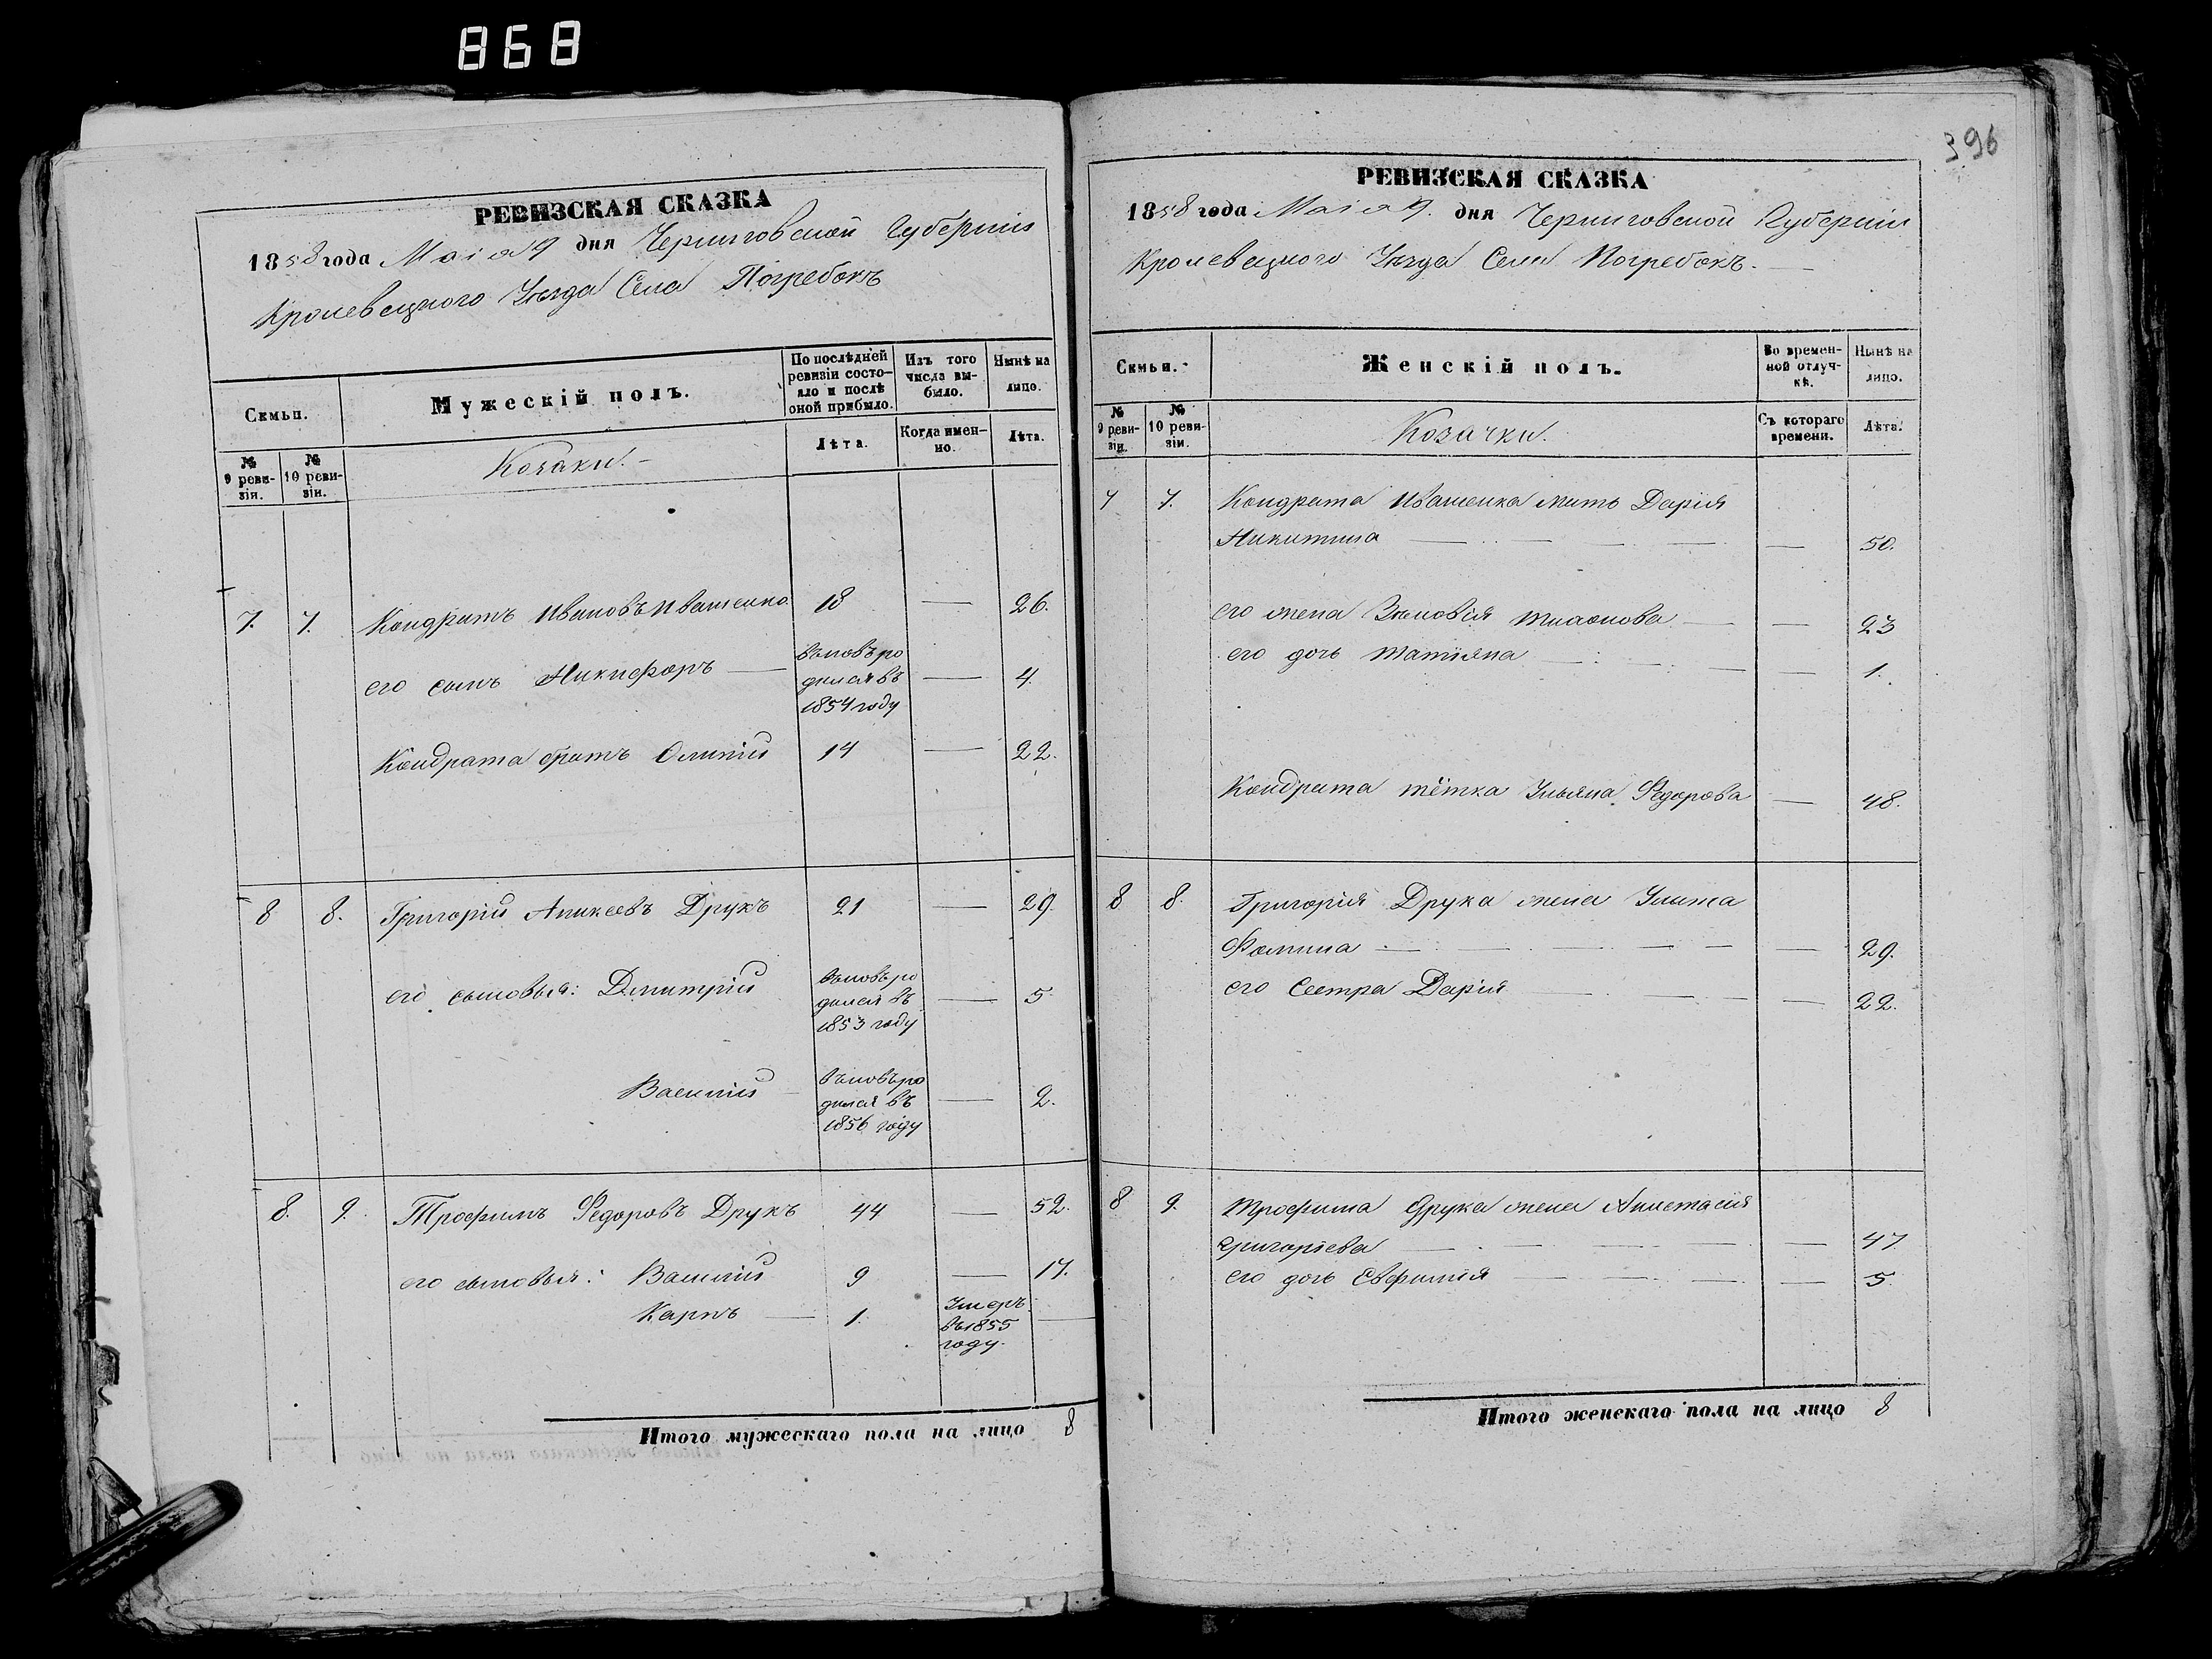 868
396
РЕВИЗСКАЯ СКАЗКА
1858 года Маія 9 дня Черниговской Губерніи
Кролевецкого Уѣзда Села Погребокъ
Семьи.
Мужескій полъ.
По послѣдней ревизіи состояло и послѣ оной прибыло.
Изъ того числа выбыло.
Нынѣ на лицо.
№ 9 ревизіи.
№ 10 ревизіи.
Козаки.
Лѣта.
Когда именно.
Лѣта.
7. 7. Кондратъ Ивановъ Ивашенко 18 — 26.
его сынъ Никифоръ — вновь родился въ 1854 году — 4.
Кондрата братъ Олипій 14 — 22.
8 8. Григорій Аникеевъ Друкъ 21 — 29.
его сыновья: Дмитрій вновь родился въ 1853 году — 5.
Василій вновь родился въ 1856 году — 2.
8. 9. Трофимъ Федоровъ Друкъ 44 — 52.
его сыновья: Василій 9 — 17.
Карпъ — 1. Умеръ въ 1855 году. —
Итого мужескаго пола на лицо 8
РЕВИЗСКАЯ СКАЗКА
1858 года Маія 9. дня Черниговской Губерніи
Кролевецкого Уѣзда Села Погребокъ. —
Семьи.
Женскій полъ.
Во временной отлучкѣ.
Нынѣ на лицо.
№ 9 ревизіи.
№ 10 ревизіи.
Козачки.
Съ котораго времени.
Лѣта.
7 7. Кондрата Ивашенка мать Дарія
Никитина — — 50.
его жена Зѣновія — — 23
его дочь Татіяна — — 1.
Кондрата тётка Ульяна Федорова — 48.
8 8. Григорія Друка жена Улита
Фомина — — 29.
его Сестра Дарія — — 22.
8 9. Трофима Друка жена Анастасія
Григоріева — — 47.
его дочь Евфимія — — 5.
Итого женскаго пола на лицо 8